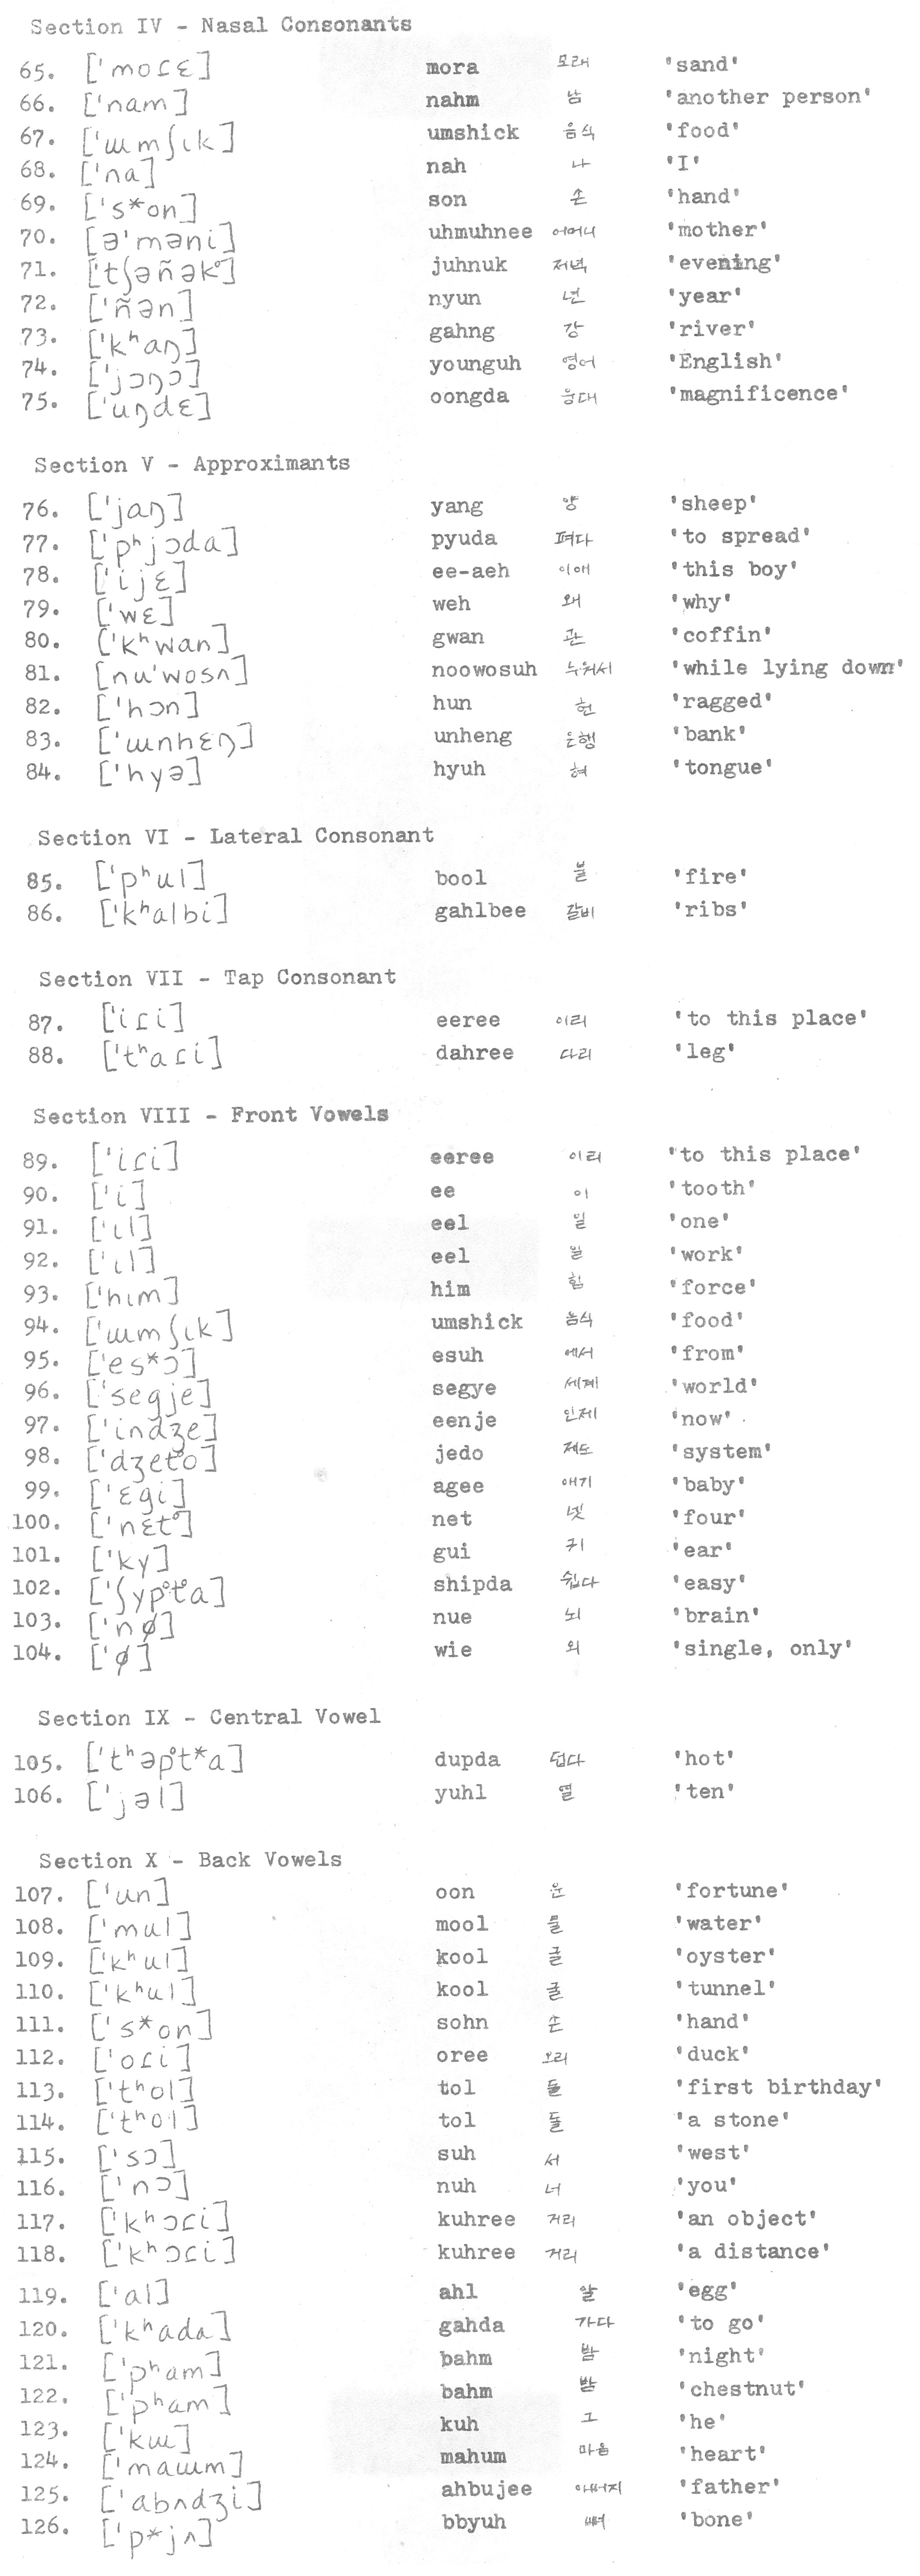 Section IV - Nasal Consonants
65. ['moɾɛ] mora 모래 'sand'
66. ['nam] nahm 남 'another person'
67. ['ɯmʃɩk] umshick 음식 'food'
68. ['na] nah 나 'I'
69. ['s*on] son 손 'hand'
70. [ə'məni] uhmuhnee 어머니 'mother'
71. ['tʃəñək°] juhnuk 저녁 'evening'
72. ['ñən] nyun 년 'year'
73. ['kʰaŋ] gahng 강 'river'
74. ['jɔŋɔ] younguh 영어 'English'
75. ['uŋdɛ] oongda 웅대 'magnificence'
Section V - Approximants
76. ['jaŋ] yang 양 'sheep'
77. ['pʰjɔda] pyuda 펴다 'to spread'
78. ['ijɛ] ee-aeh 이애 'this boy'
79. ['wɛ] weh 왜 'why'
80. ['kʰwan] gwan 관 'coffin'
81. [nu'wosʌ] noowosuh 누워서 'while lying down'
82. ['hɔn] hun 헌 'ragged'
83. ['ɯnhɛŋ] unheng 은행 'bank'
84. ['hyə] hyuh 혀 'tongue'
Section VI - Lateral Consonant
85. ['pʰul] bool 불 'fire'
86. ['kʰalbi] gahlbee 갈비 'ribs'
Section VII - Tap Consonant
87. ['iɾi] eeree 이리 'to this place'
88. ['tʰaɾi] dahree 다리 'leg'
Section VIII - Front Vowels
89. ['iɾi] eeree 이리 'to this place'
90. ['i] ee 이 'tooth'
91. ['ɩl] eel 일 'one'
92. ['ɩl] eel 일 'work'
93. ['hɩm] him 힘 'force'
94. ['ɯmʃɩk] umshick 음식 'food'
95. ['es*ɔ] esuh 에서 'from'
96. ['segje] segye 세계 'world'
97. ['indʒe] eenje 인제 'now'
98. ['dʒet°o] jedo 제도 'system'
99. ['ɛgi] agee 애기 'baby'
100. ['nɛt°] net 넷 'four'
101. ['ky] gui 귀 'ear'
102. ['ʃyp°t°a] shipda 쉽다 'easy'
103. ['nø] nue 뇌 'brain'
104. ['ø] wie 외 'single, only'
Section IX - Central Vowel
105. ['tʰəp°t*a] dupda 덥다 'hot'
106. ['jəl] yuhl 열 'ten'
Section X - Back Vowels
107. ['un] oon 운 'fortune'
108. ['mul] mool 물 'water'
109. ['kʰul] kool 굴 'oyster'
110. ['kʰul] kool 굴 'tunnel'
111. ['s*on] sohn 손 'hand'
112. ['oɾi] oree 오리 'duck'
113. ['tʰol] tol 돌 'first birthday'
114. ['tʰol] tol 돌 'a stone'
115. ['sɔ] suh 서 'west'
116. ['nɔ] nuh 너 'you'
117. ['kʰɔɾi] kuhree 거리 'an object'
118. ['kʰɔɾi] kuhree 거리 'a distance'
119. ['al] ahl 알 'egg'
120. ['kʰada] gahda 가다 'to go'
121. ['pʰam] bahm 밤 'night'
122. ['pʰam] bahm 밤 'chestnut'
123. ['kɯ] kuh 그 'he'
124. ['maɯm] mahum 마음 'heart'
125. ['abʌdʒi] ahbujee 아버지 'father'
126. ['p*jʌ] bbyuh 뼈 'bone'